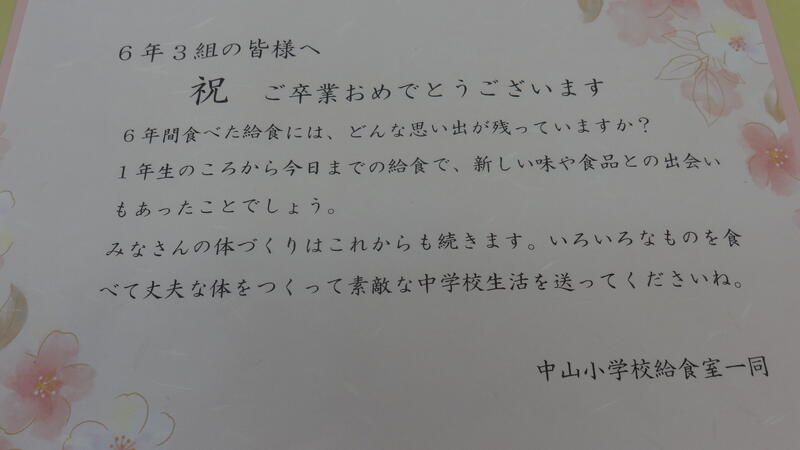 ６年３組の皆様へ
祝　ご卒業おめでとうございます
６年間食べた給食には、どんな思い出が残っていますか？
１年生のころから今日までの給食で、新しい味や食品との出会い
もあったことでしょう。
みなさんの体づくりはこれからも続きます。いろいろなものを食
べて丈夫な体をつくって素敵な中学校生活を送ってくださいね。
中山小学校給食室一同